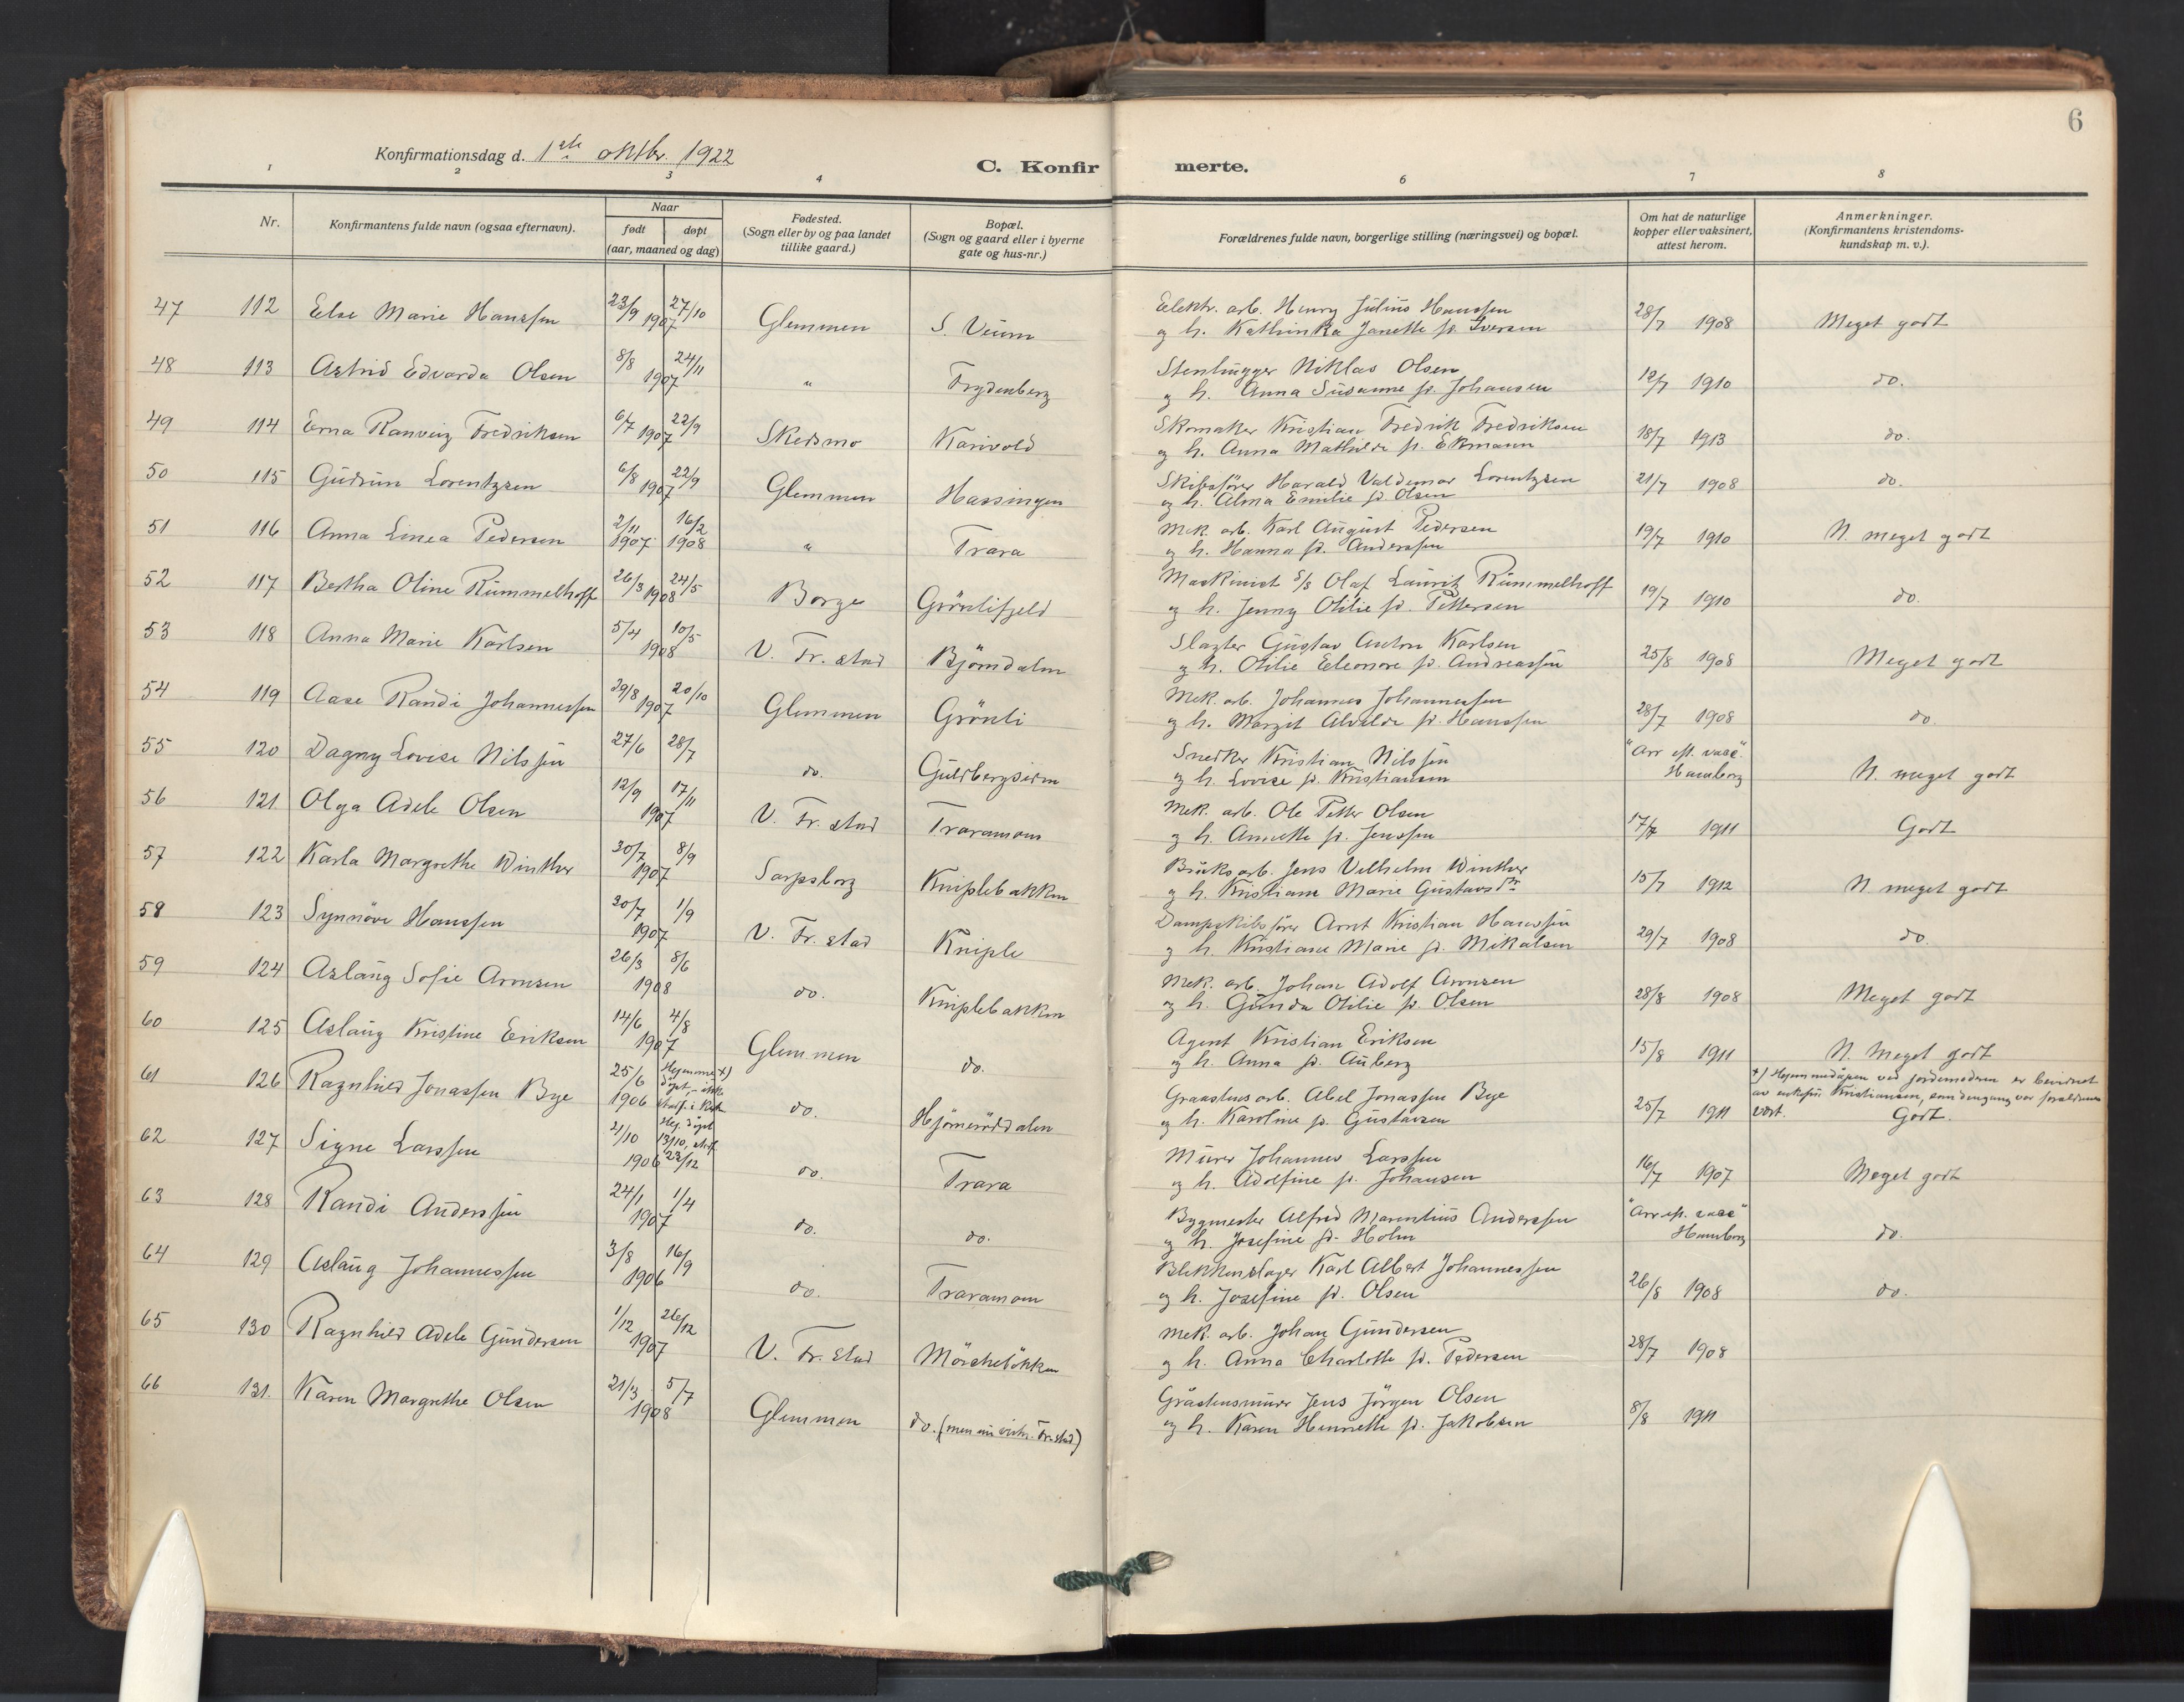 6
Konfirmationsdag d. 1ste oktbr. 1922
C. Konfirmerte.
1 2 3 4 6 7 8
Nr.
Konfirmantens fulde navn (ogsaa efternavn).
Naar
født døpt
(aar, maaned og dag)
Fødested.
(Sogn eller by og paa landet
tillike gaard.)
Bopæl.
(Sogn og gaard eller i byerne
gate og hus-nr.)
Forældrenes fulde navn, borgerlige stilling (næringsvei) og bopæl.
Om hat de naturlige
kopper eller vaksinert,
attest herom.
Anmerkninger.
(Konfirmantens kristendoms-
kundskap m. v.).
47 112 Else Marie Hanssen 23/9 1907 27/10 Glemmen S. Veum Elektr. arb. Henry Julius Hanssen
og h. Kathinka Janette fd. Iversen 28/7 1908 Meget godt
48 113 Astrid Edvarda Olsen 8/8 1907 24/11 " Frydenberg Stenhugger Niklas Olsen
og h. Anna Susanne fd. Johansen 12/7 1910 do.
49 114 Erna Ranveig Fredriksen 6/7 1907 22/9 Skedsmo Karivold Skomaker Kristian Fredrik Fredriksen
og h. Anna Mathilde fd. Ekmann 18/7 1913 do.
50 115 Gudrun Lorentzsen 6/8 1907 22/9 Glemmen Hassingen Skibsfører Harald Valdemar Lorentzsen
og h. Alma Emilie fd. Olsen 21/7 1908 do.
51 116 Anna Linea Pedersen 2/11 1907 16/2 1908 " Trara Mek. arb. Karl August Pedersen
og h. Hanna fd. Anderssen 19/7 1910 N. meget godt
52 117 Bertha Oline Rummelhoff 26/3 1908 24/5 Borge Grönlifjeld Maskinist s/s Olaf Lauritz Rummelhoff
og h. Jenny Otilie fd. Pettersen 19/7 1910 do.
53 118 Anna Marie Karlsen 5/4 1908 10/5 V. Fr. stad Björndalen Slagter Gustav Anton Karlsen
og h. Otilie Eleonore fd. Andreassen 25/8 1908 Meget godt
54 119 Aase Randi Johannessen 29/8 1907 20/10 Glemmen Grönli Mek. arb. Johannes Johannessen
og h. Margit Alvilde fd. Hanssen 28/7 1908 do.
55 120 Dagny Lovise Nilssen 27/6 28/7 do. Guldbergsiden Snedker Kristian Nilssen
og h. Lovise fd. Kristiansen "Arr eft. vacc".
Hamborg N. meget godt
56 121 Olga Adele Olsen 12/9 1907 17/11 V. Fr. stad Traramoen Mek. arb. Ole Petter Olsen
og h. Annette fd. Jenssen 17/7 1911 Godt
57 122 Karla Margrethe Winther 30/7 1907 8/9 Sarpsborg Kniplebakken Bruksarb. Jens Vilhelm Winther
og h. Kristiane Marie Gustavsdtr 15/7 1912 N meget godt
58 123 Synnöve Hanssen 20/7 1907 1/9 V. Fr. stad Kniple Dampskibsfører Arnt Kristian Hanssen
og h. Kristiane Marie fd. Mikalsen 29/7 1908 do.
59 124 Aslaug Sofie Aronsen 26/3 1908 8/6 do. Kniplebakken Mek. arb. Johan Adolf Aronsen
og h. Gunda Otilie fd. Olsen 28/8 1908 Meget godt
60 125 Aslaug Kristine Eriksen 14/6 1907 4/8 Glemmen do. Agent Kristian Eriksen
og h. Anna fd. Auberg 15/8 1911 N. Meget godt
61 126 Ragnhild Jonassen Bye 25/6 1906 Hjemme x) döpt, ikke stadf. i Kirk do. Graastens arb. Abel Jonassen Bye
og h. Karoline fd. Gustavsen 25/7 1911 x) Hjemmedåpen ved jordemoderen er bevidnet
av enkefru Kristiansen, som dengang var forældrenes
vert. Godt.
62 127 Signe Larssen 2/10 1906 Hj. döpt 13/10, stadf. 23/12 do. Trara Murer Johannes Larssen
og h. Adolfine fd. Johansen 16/7 1907 Meget godt
63 128 Randi Anderssen 24/1 1907 1/4 do. do. Bygmester Alfred Marentius Anderssen
og h. Josefine fd. Holm "Arr eft. vacc"
Hamborg do.
64 129 Aslaug Johannessen 3/8 1906 16/9 do. Traramoen Blikkenslager Karl Albert Johannessen
og h. Josefine fd. Olsen 26/8 1908 do.
65 130 Ragnhild Adele Gundersen 1/12 1907 26/12 V. Fr. Stad Mörchelökken Mek. arb. Johan Gundersen
og h. Anna Charlotte fd. Pedersen 28/7 1908
66 131. Karen Margrethe Olsen 21/3 1908 5/7 Glemmen do. (men nu vestr. Fr.stad) Gråstensmurer Jens Jörgen Olsen
og h. Karen Henriette fd. Jakobsen 8/8 1911